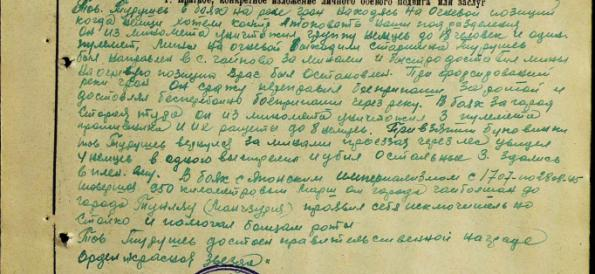 I. Краткое, конкретное изложение личного боевого подвига или заслуг
Тов. Турушев в боях на реке Грон находясь на огневой позиции
когда немцы хотели контратаковать наши подразделения
он из миномета уничтожил группу немцев до 18 человек и один
пулемет, мины на огневой выходили старшина Турушев
был направлен в с. Чайково за минами и быстро доставил мины
на огневую позицию враг был остановлен. При форсировании
реки Грон он сразу переправил боеприпасы за ротой и
доставлял бесперебойно боеприпасы через реку. В боях за город
он из миномета уничтожил 3 пулемета
противника и до 8 немцев. При взятии
тов Турушев вернулся за минами проезжая через лес увидел
4 немцев в одного выстрелил и убил остальные 3 здались
в плен. В боях с Японским империализмом с 17.07 по 28.08.45
совершил 950 километровый марш от города Чойболсан до
города (Манчжурия) проявил себя исключительно
стойко и помогал бойцам роты
Тов Турушев достоен правительственной награде
Орден Красная Звезда"